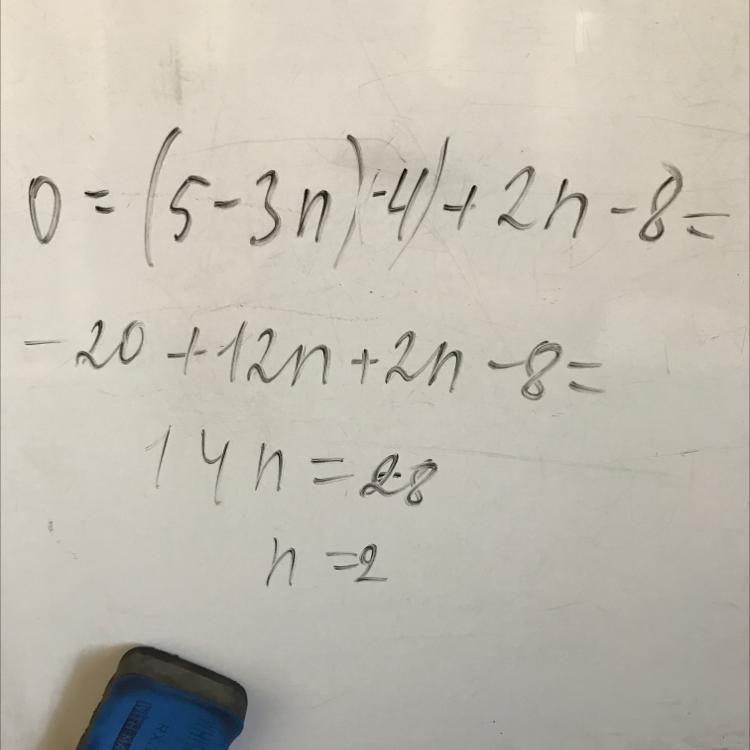 0 = (5 - 3n)(-4) + 2n - 8 =
-20 + 12n + 2n - 8 =
14n = 28
n = 2